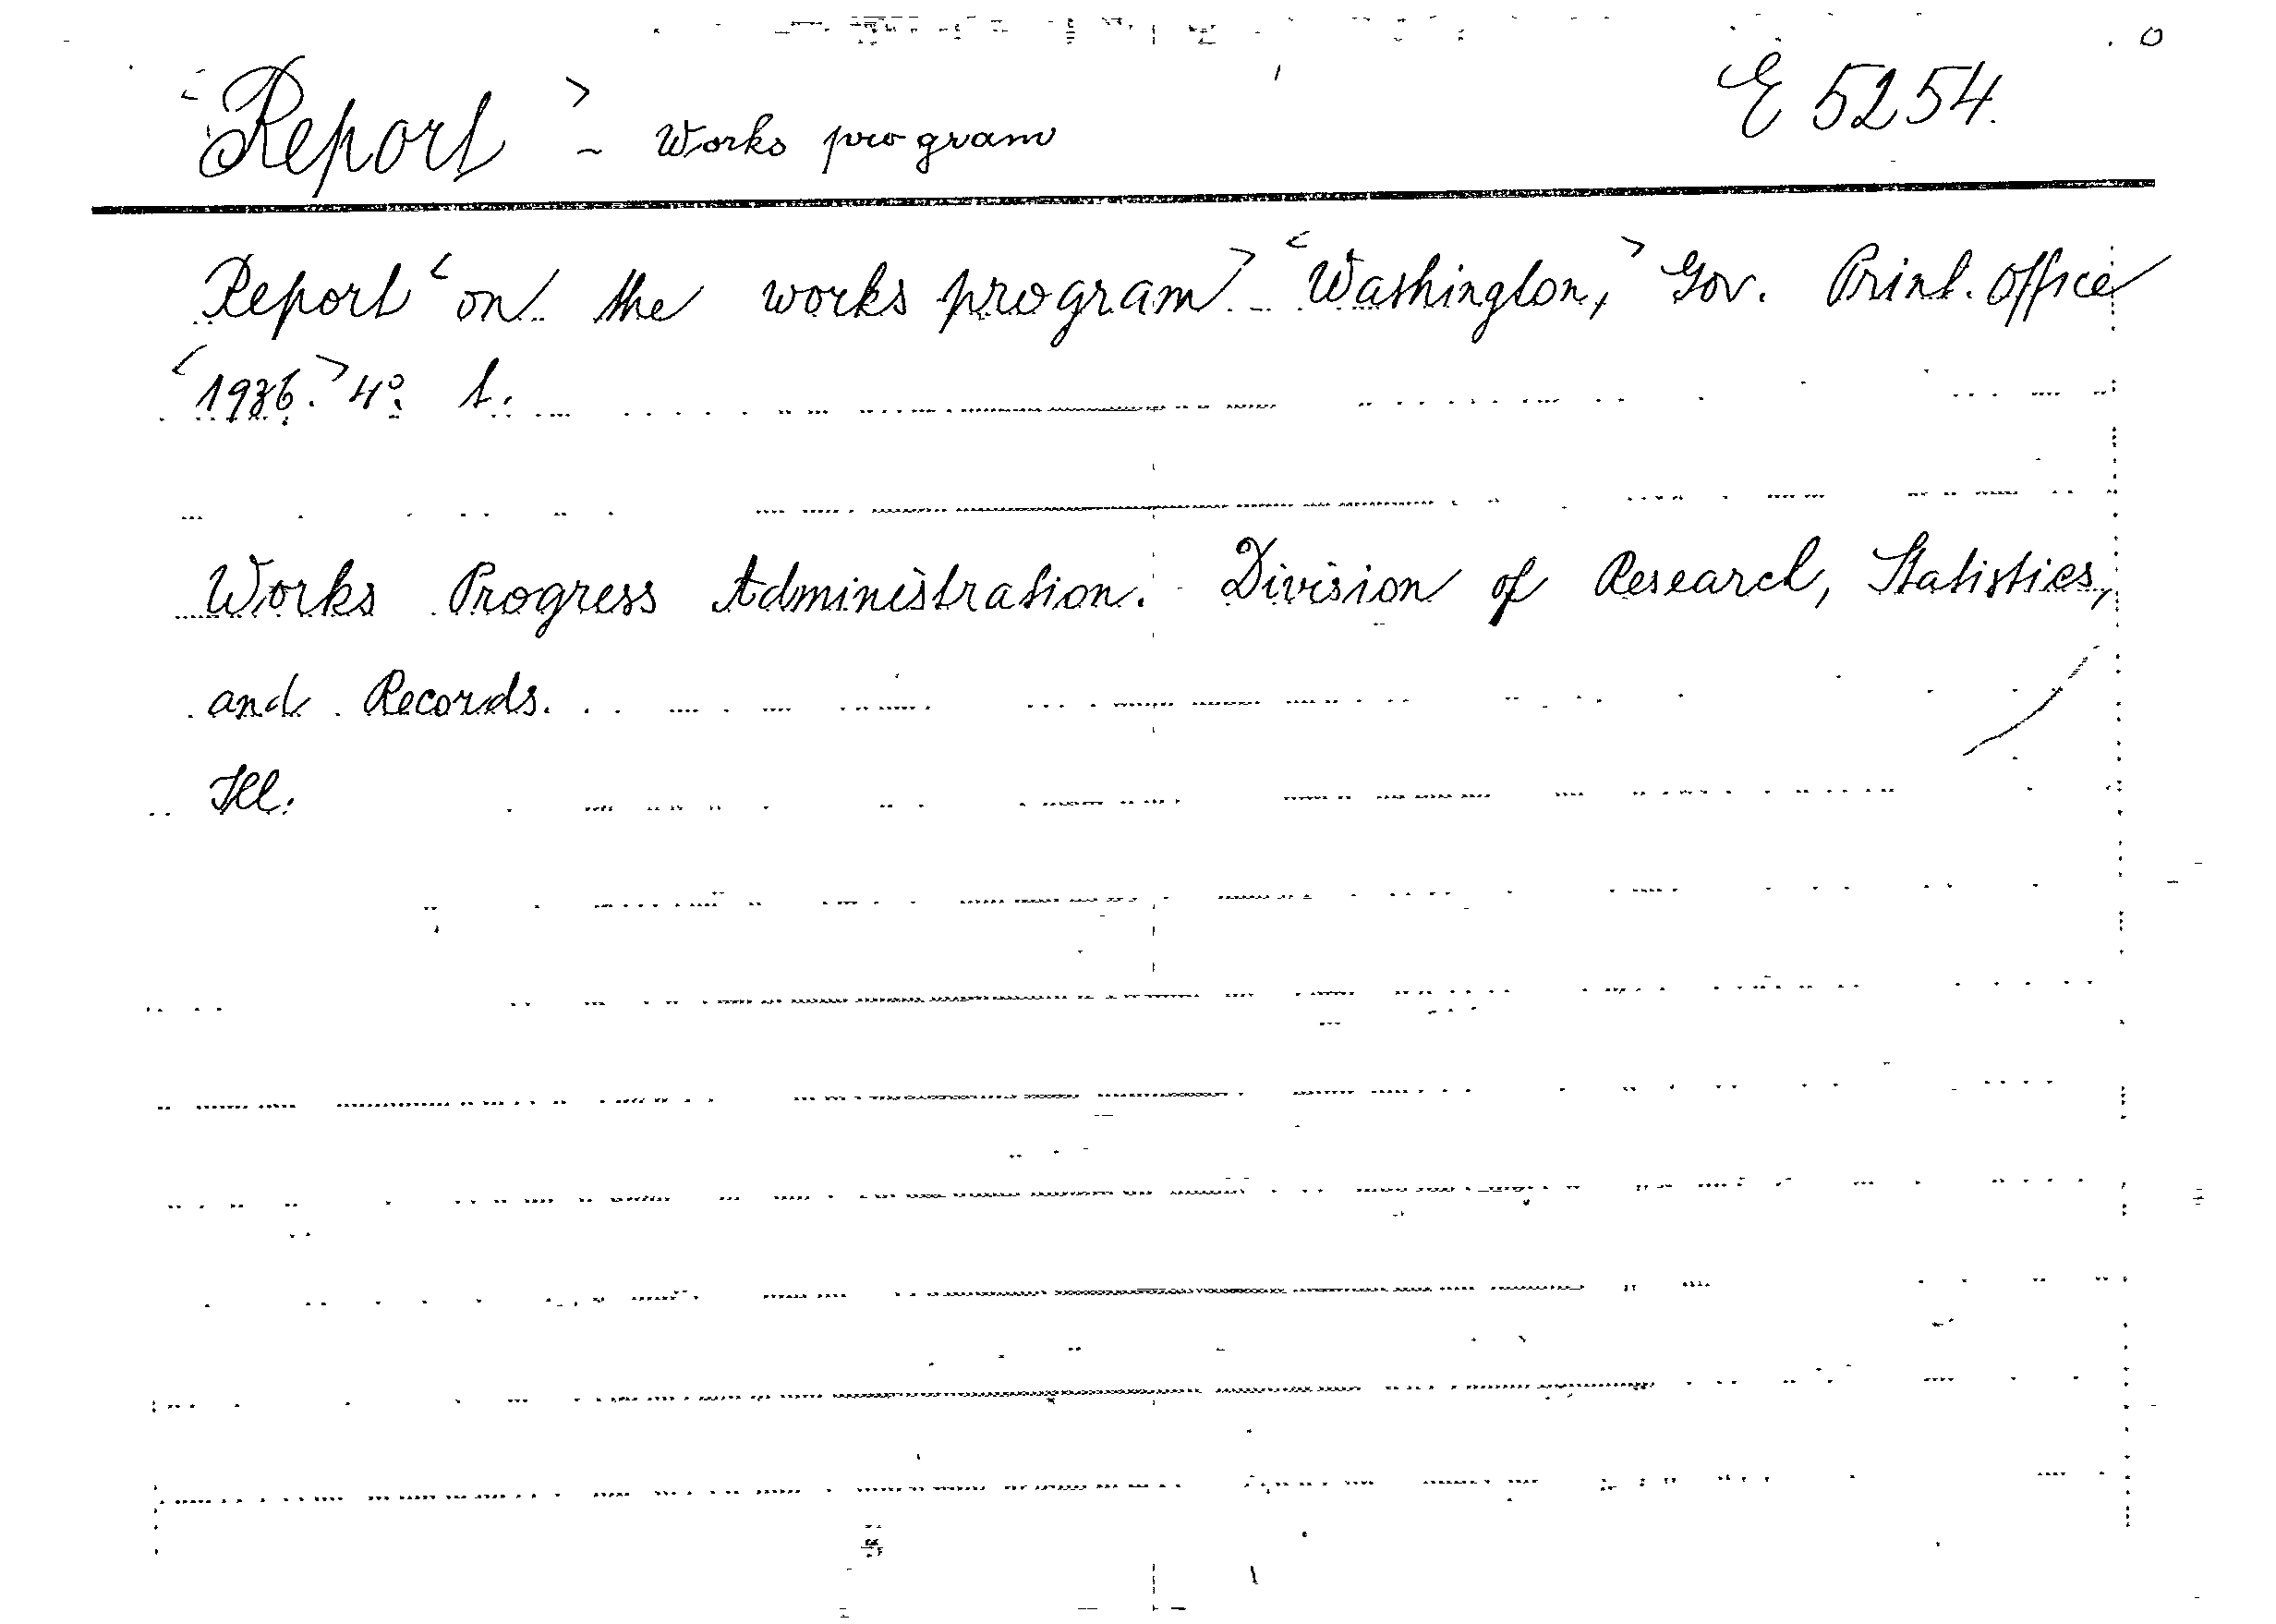 <Report> - Works program
E 5254.
Report <on the works program> - <Washington,> Gov. Print. Office
<1936.> 4° t.
Works Progress Administration. Division of Research, Statistics,
and Records.
Ill.